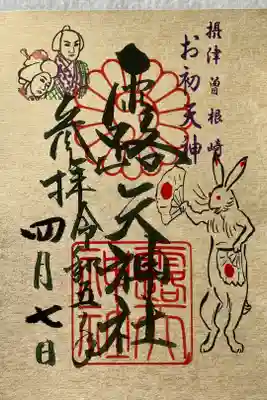 摂津曽根崎
お初天神
露天神社
参拝 令和五年
四月七日